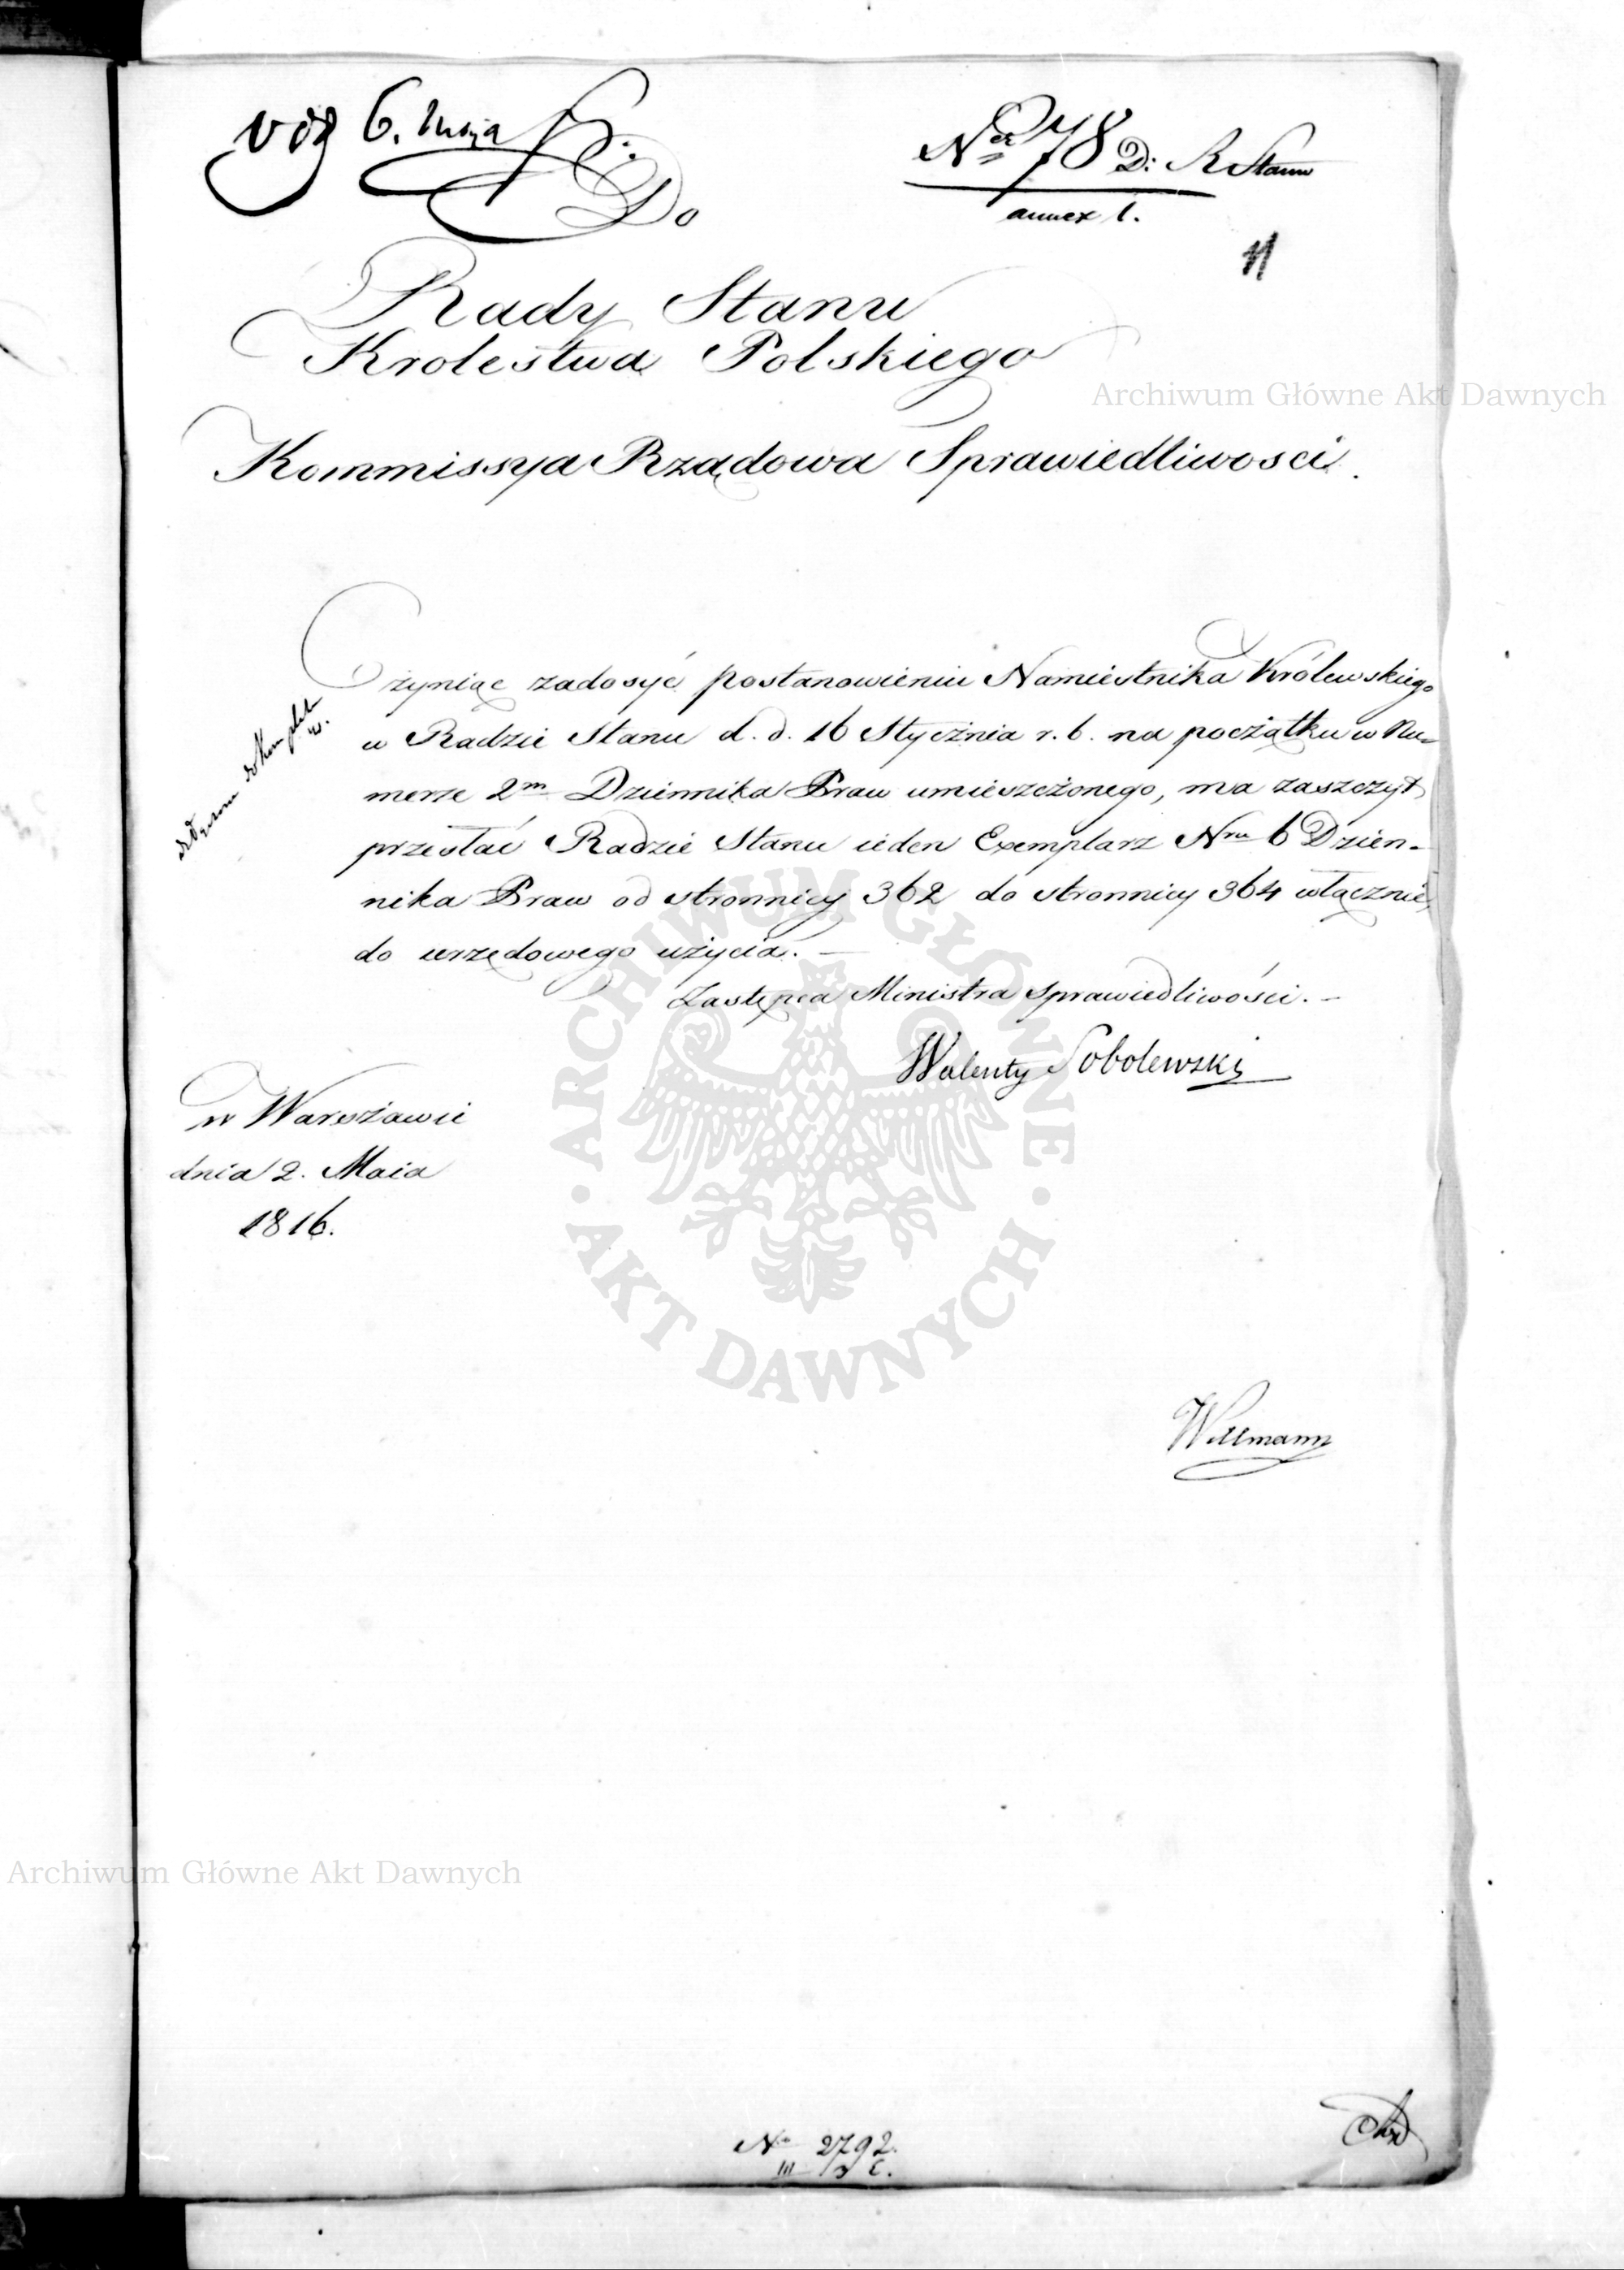 6. maja
Nro 78 D: R Stanu
annex 1.
Do
Rady Stanu
Krolestwa Polskiego
Archiwum Główne Akt Dawnych
Kommissya Rządowa Sprawiedliwosci.
Czyniąc zadosyć postanowieniu Namiestnika Królewskiego
w Radzie Stanu d. d. 16 Stycznia r. b. na początku w Nu-
merze 2m Dziennika Praw umieszczonego, ma zaszczyt
przesłać Radzie Stanu ieden Exemplarz Nru 6 Dzien-
nika Praw od stronnicy 362 do stronnicy 364 włącznie
do urzędowego użycia. —
Zastępca Ministra Sprawiedliwości. —
Walenty Sobolewski
w Warszawie
dnia 2. Maia
1816.
ARCHIWUM GŁÓWNE
AKT DAWNYCH
Willmann
Archiwum Główne Akt Dawnych
No 2792.
III